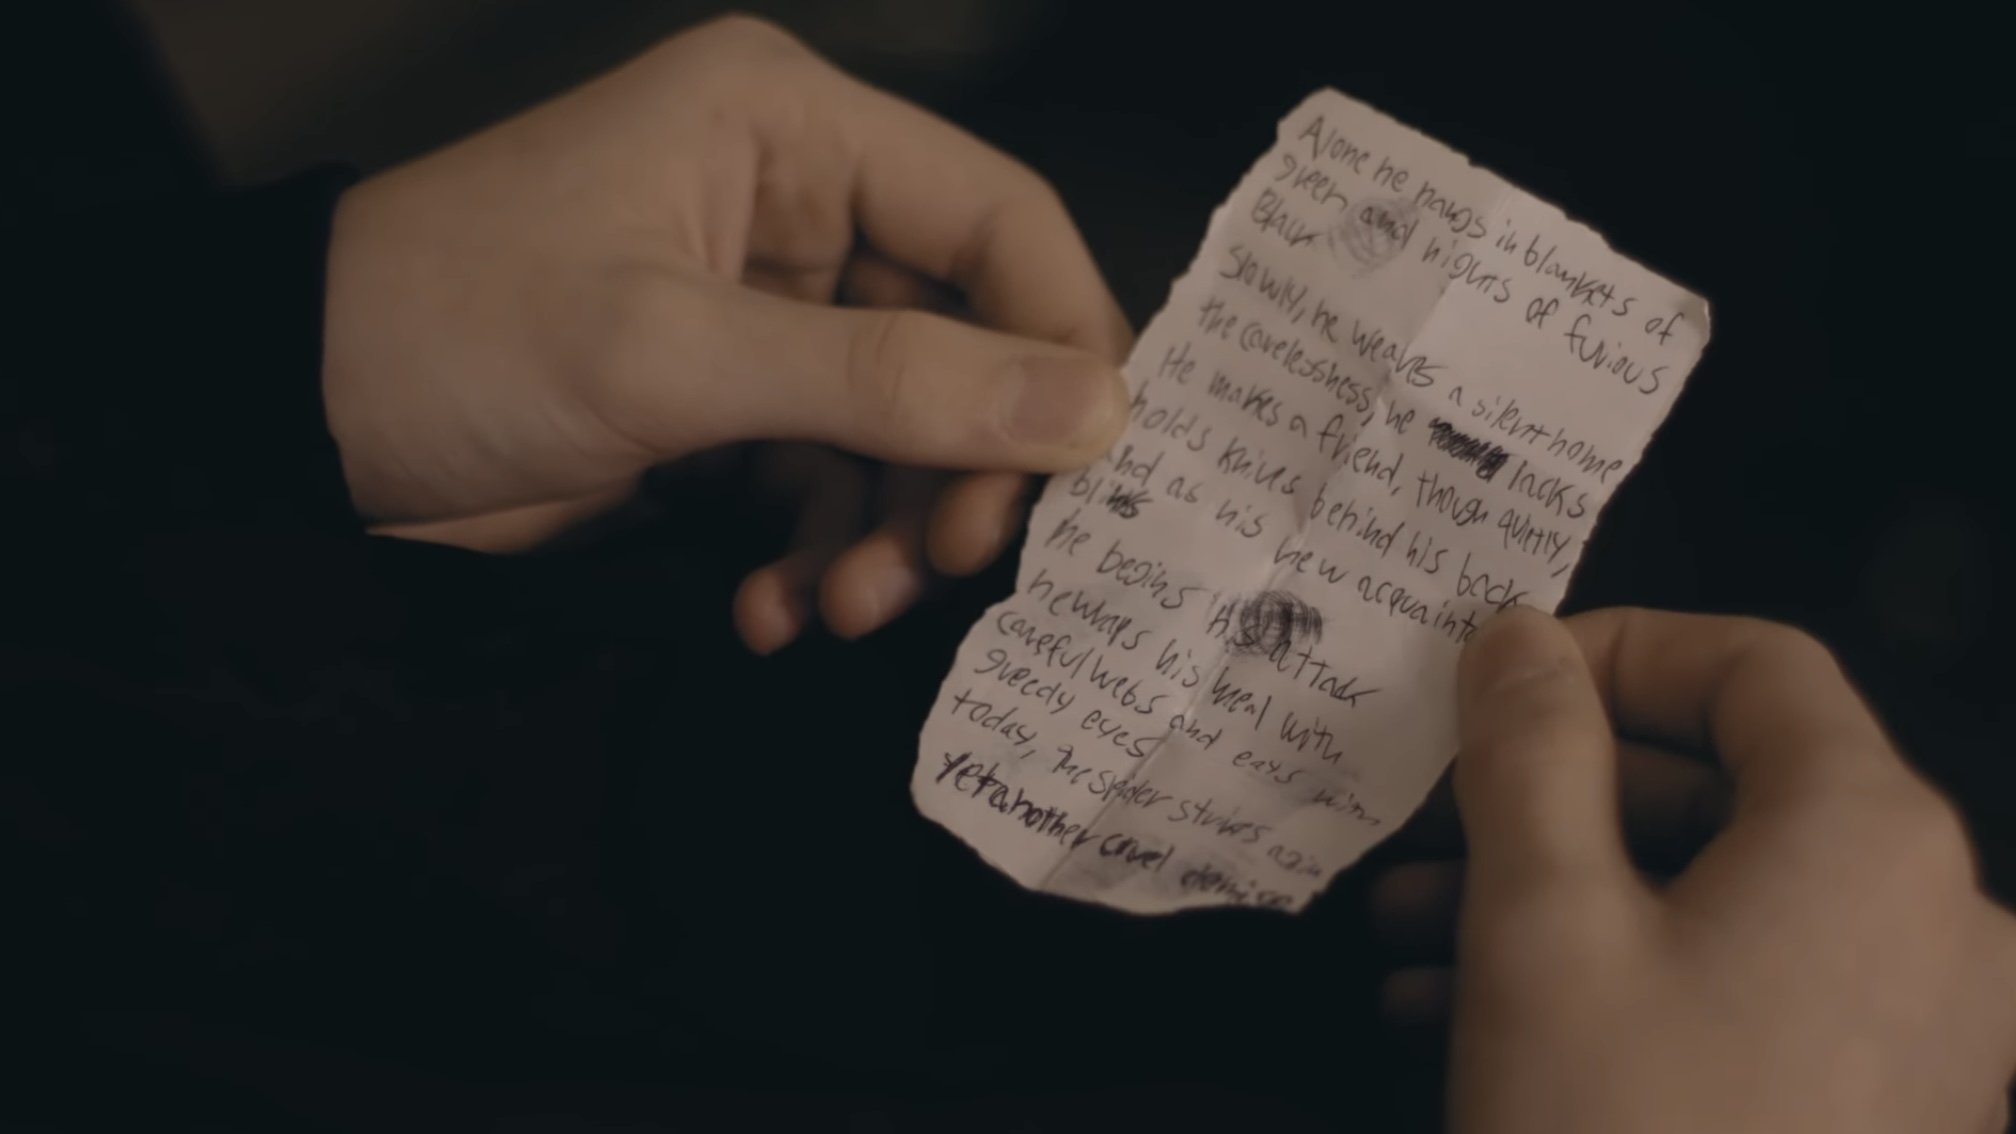 Alone he hangs in blankets of
green and nights of furious
Blair
Slowly, he weaves a silent home
the carelessness, he lacks
He makes a friend, though quietly,
holds knives behind his back
And as his new acquainta
blinks
he begins his attack
he wraps his meal with
careful webs and eats with
greedy eyes
today, the spider strikes again
yet another cruel demise